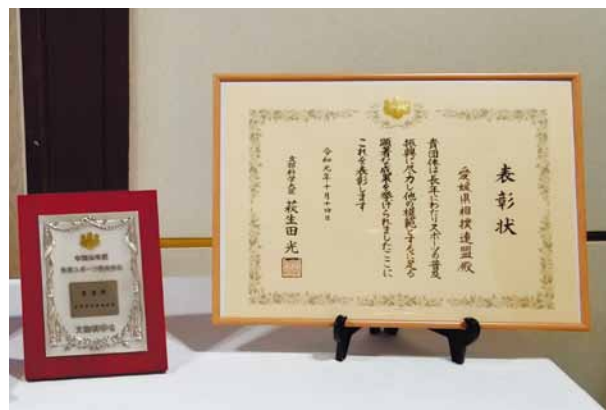 表彰状
愛媛県相撲連盟殿
貴団体は長年にわたりスポーツの普及
振興に尽力し他の模範とするに足る
顕著な成果を挙げられましたここに
これを表彰します
令和元年十月十四日
文部科学大臣 萩生田光一